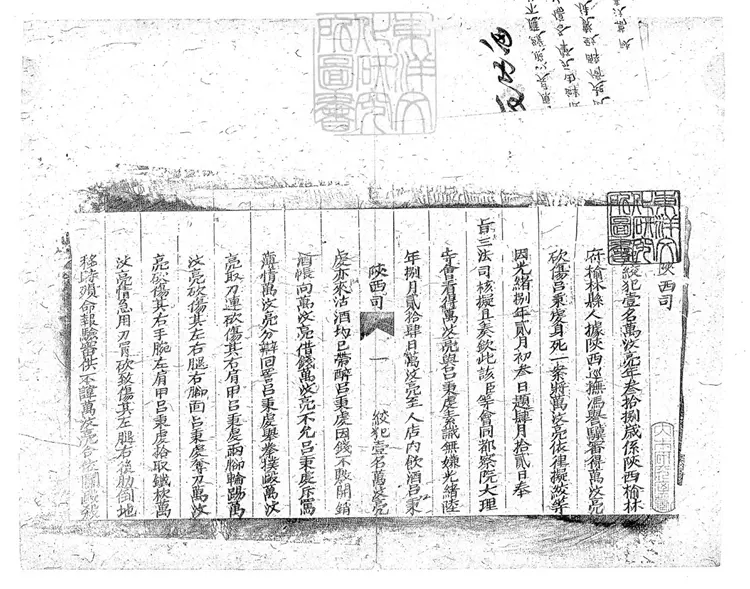 陝西司
絞犯壹名萬汶亮年叁拾捌歲係陝西榆林
府榆林縣人據陝西巡撫馮譽驥審得萬汶亮
砍傷呂秉處身死一案將萬汶亮依律擬絞等
因光緒捌年貳月初叁日題肆月拾貳日奉
旨三法司核擬具奏欽此該臣等會同都察院大理
寺會看得萬汶亮與呂秉處素識無嫌光緒陸
年捌月貳拾肆日萬汶亮至 人店內飲酒呂秉
陝西司 一 絞犯壹名萬汶亮
處亦來沽酒均已帶醉呂秉處因錢不敷開銷
酒帳向萬汶亮借錢萬汶亮不允呂秉處斥罵
薄情萬汶亮分辯回罵呂秉處舉拳撲毆萬汶
亮取刀連砍傷其右肩甲呂秉處兩腳輪踢萬
汶亮砍傷其左右腿右腳面呂秉處奪刀萬汶
亮砍傷其右手腕左肩甲呂秉處拾取鐵 萬
汶亮情急用刀 砍致傷其左腿右後肋倒地
移時殞命報驗審供不諱萬汶亮合依鬬毆殺
東洋文化研究所圖書